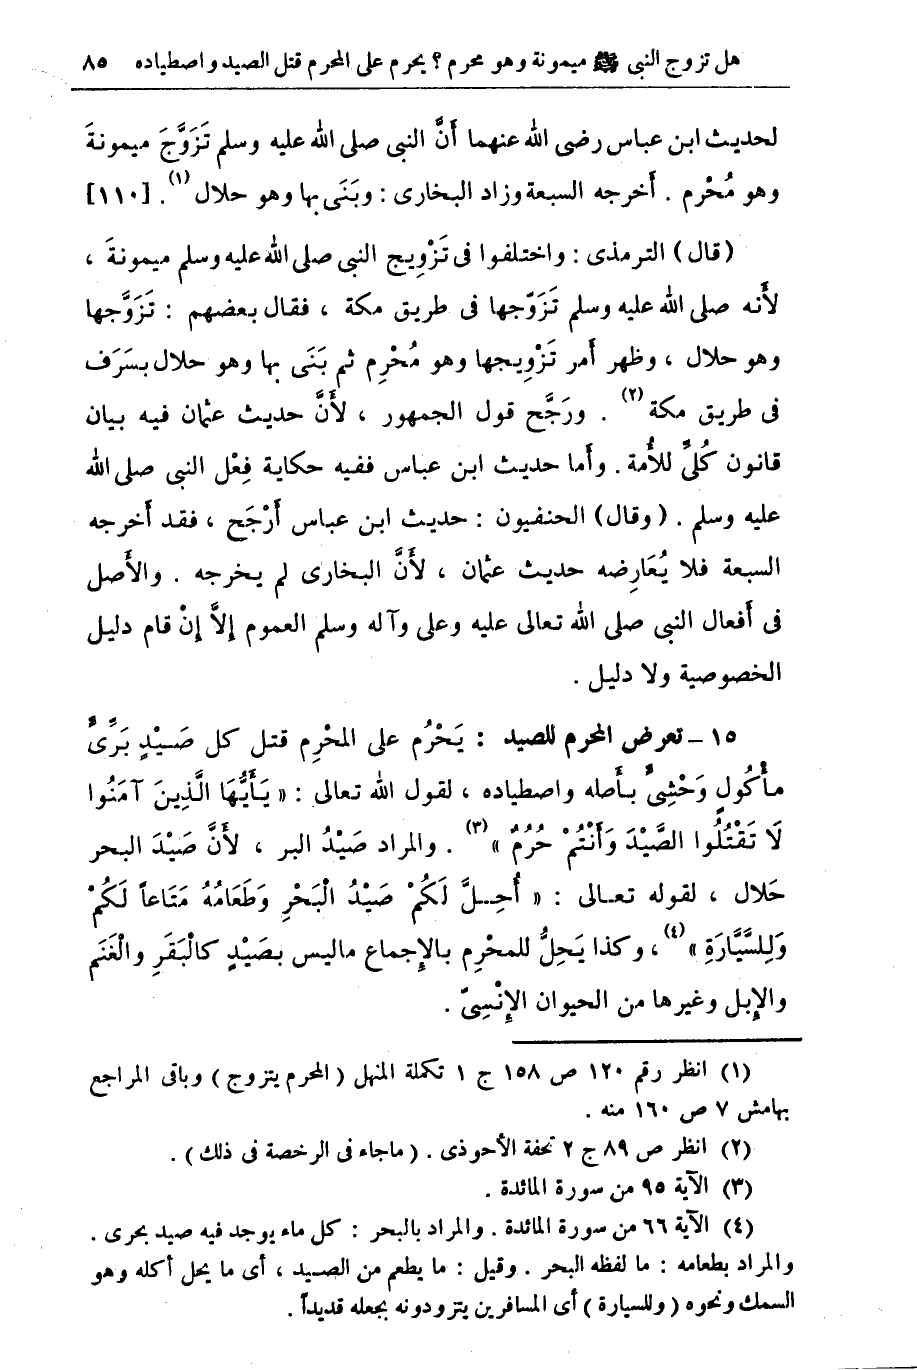 هل تزوج النبى ﷺ ميمونة وهو محرم ؟ يحرم على المحرم قتل الصيد واصطياده ٨٥
لحديث ابن عباس رضى الله عنهما أَنَّ النبى صلى الله عليه وسلم تَزَوَّجَ ميمونةَ
وهو مُحْرم . أخرجه السبعة وزاد البخارى : وبَنَى بها وهو حلال (١) . [١١٠]
(قال) الترمذى : واختلفوا فى تَزْوِيج النبى صلى الله عليه وسلم ميمونةَ ،
لأَنه صلى الله عليه وسلم تَزَوّجها فى طريق مكة ، فقال بعضهم : تَزَوَّجها
وهو حلال ، وظهر أَمر تَزْوِيجها وهو مُحْرِم ثم بَنَى بها وهو حلال بسَرَف
فى طريق مكة (٢) . ورَجَّح قول الجمهور ، لأَنَّ حديث عثمان فيه بيان
قانون كُلىٍّ للأُمة . وأما حديث ابن عباس ففيه حكاية فِعْل النبى صلى الله
عليه وسلم . (وقال) الحنفيون : حديث ابن عباس أَرْجَح ، فقد أخرجه
السبعة فلا يُعَارِضه حديث عثمان ، لأَنَّ البخارى لم يخرجه . والأَصل
فى أَفعال النبى صلى الله تعالى عليه وعلى وآله وسلم العموم إِلاَّ إِنْ قام دليل
الخصوصية ولا دليل .
١٥ – تعرض المحرم للصيد : يَحْرُم على المحْرِم قتل كل صَيْدٍ بَرِّىٍّ
مأْكُولٍ وَحْشِىٍّ بأَصله واصطياده ، لقول الله تعالى : « يَأَيُّهَا الَّذِينَ آمَنُوا
لَا تَقْتُلُوا الصَّيْدَ وَأَنْتُمْ حُرُمٌ » (٣) . والمراد صَيْدُ البر ، لأَنَّ صَيْدَ البحر
حَلال ، لقوله تعالى : « أُحِلَّ لَكُمْ صَيْدُ الْبَحْرِ وَطَعَامُهُ مَتَاعاً لَكُمْ
وَلِلسَّيَّارَةِ » (٤) ، وكذا يَحِلُّ للمحْرِم بالإِجماع ماليس بصَيْدٍ كالْبَقَرِ والْغَنَم
والإِبل وغيرها من الحيوان الإِنْسِىّ .
(١) انظر رقم ١٢٠ ص ١٥٨ ج ١ تكملة المنهل ( المحرم يتزوج ) وباقى المراجع
بهامش ٧ ص ١٦٠ منه .
(٢) انظر ص ٨٩ ج ٢ تحفة الأحوذى . ( ماجاء فى الرخصة فى ذلك ) .
(٣) الآية ٩٥ من سورة المائدة .
(٤) الآية ٦٦ من سورة المائدة . والمراد بالبحر : كل ماء يوجد فيه صيد بحرى .
والمراد بطعامه : ما لفظه البحر . وقيل : ما يطعم من الصيد ، أى ما يحل أكله وهو
السمك ونحوه ( وللسيارة ) أى المسافرين يتزودونه بجعله قديداً .